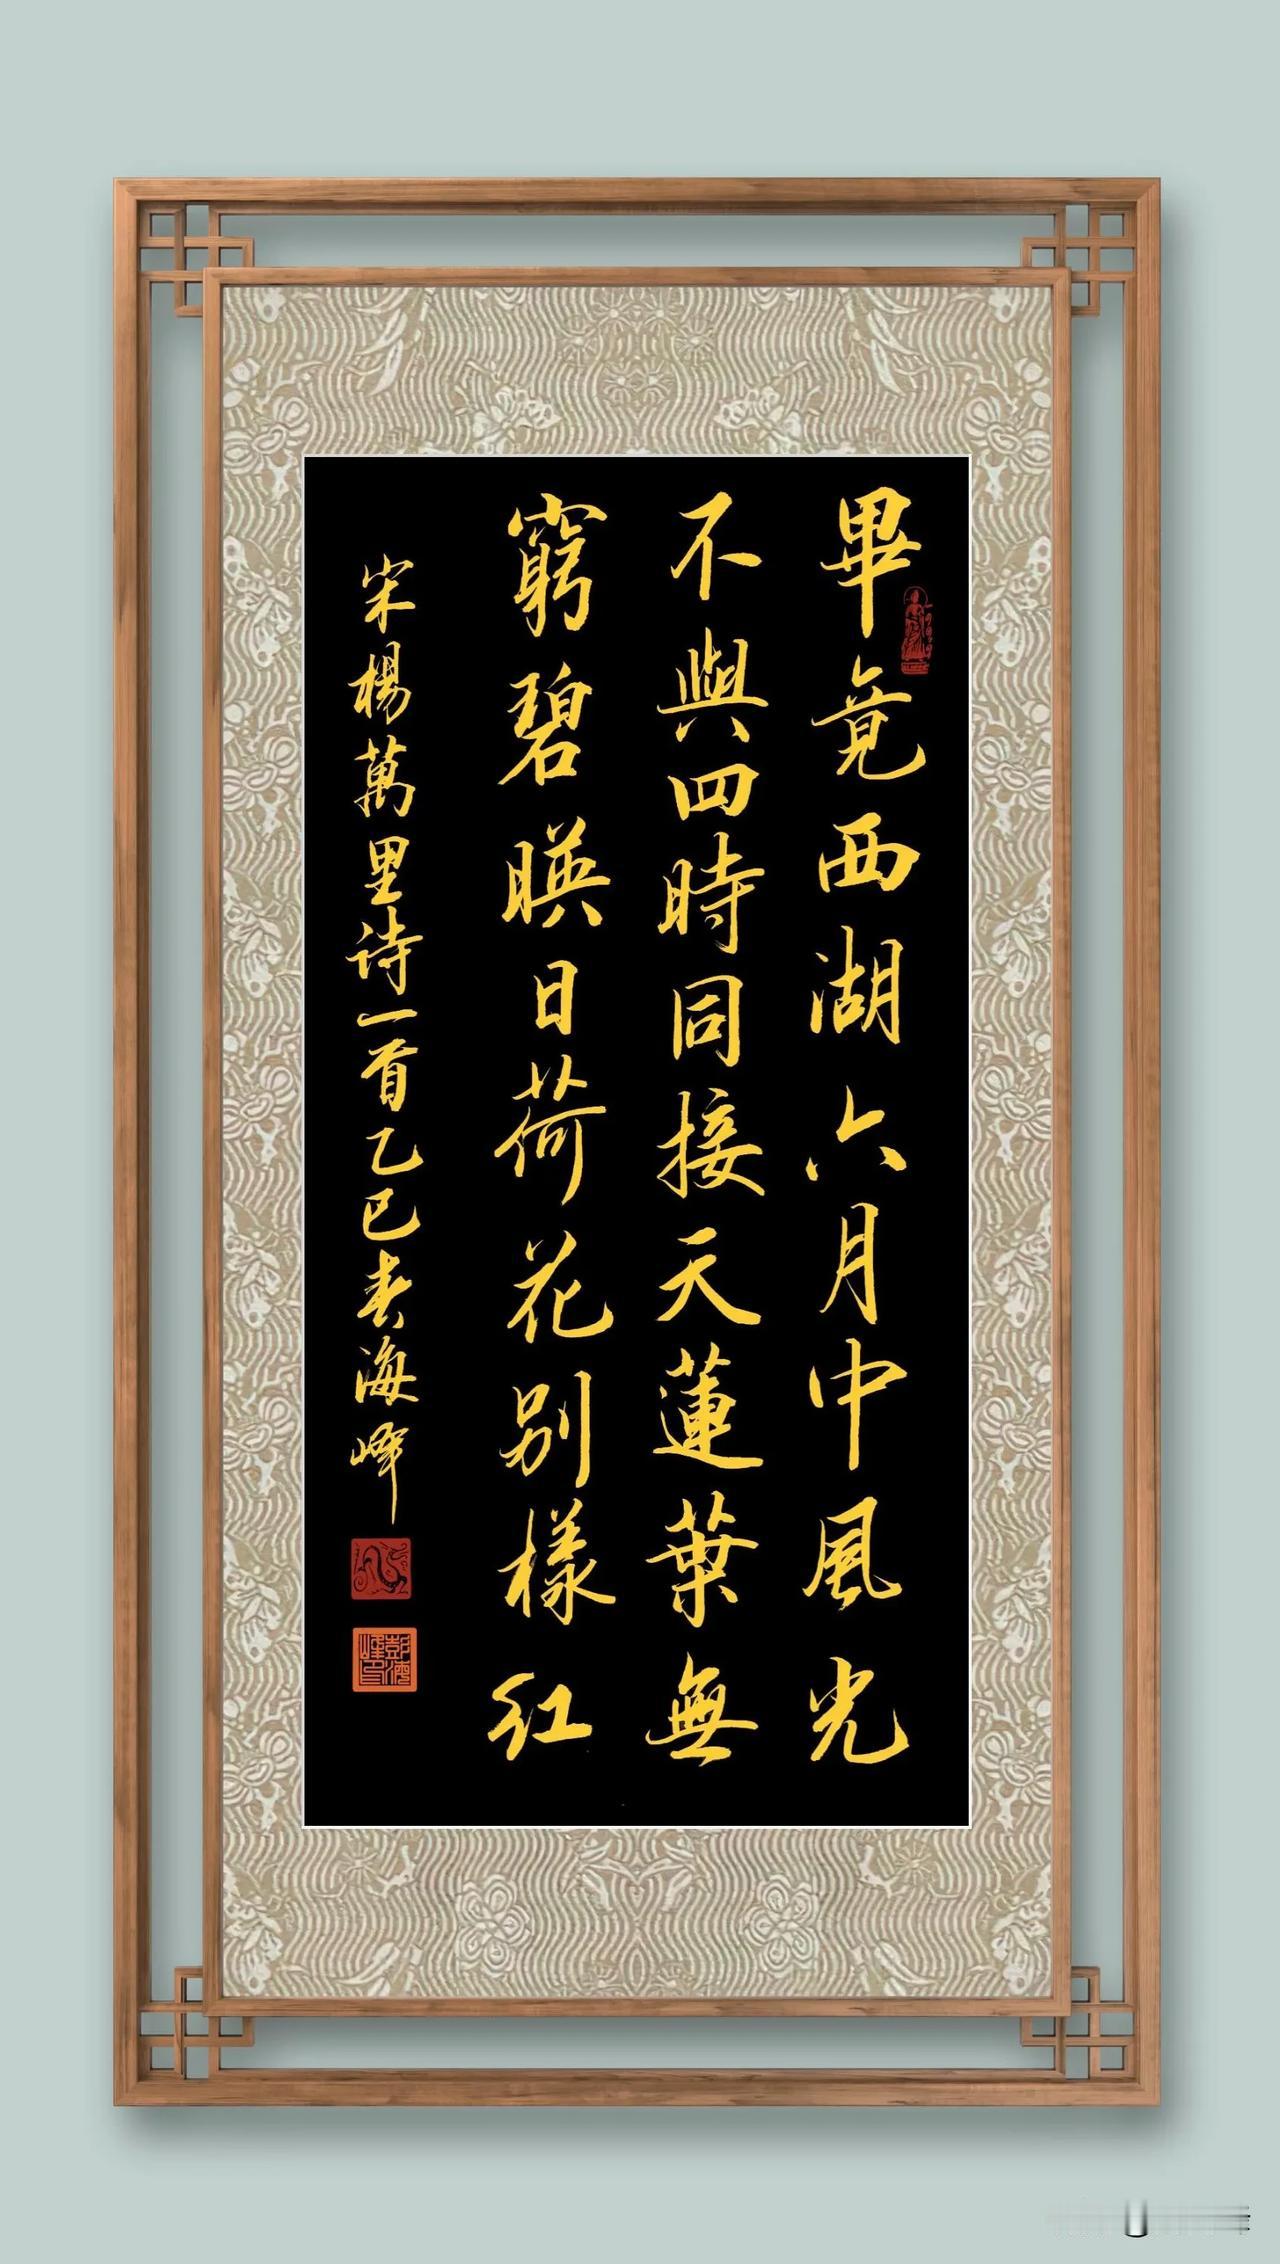 畢竟西湖六月中風光
不與四時同接天蓮葉無
窮碧暎日荷花别樣红
宋楊萬里诗一首乙巳春海峰
彭海峰印